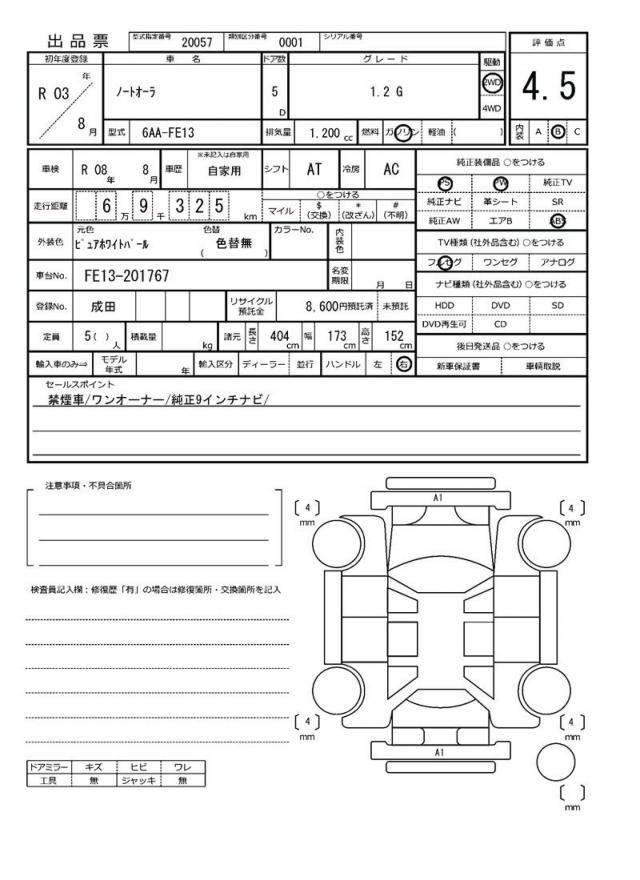 出品票 型式指定番号 20057 類別区分番号 0001 シリアル番号
評価点
4.5
内装 A B C
初年度登録 車名 ドア数 グレード 駆動
R 03 年 8 月 ノートオーラ 5 D 1.2 G 2WD 4WD
型式 6AA-FE13 排気量 1,200 cc 燃料 ガソリン 軽油 ( )
車検 R 08 年 8 月 車歴 ※未記入は自家用 自家用 シフト AT 冷房 AC
走行距離 6 万 9 千 3 2 5 km ○をつける
マイル $ (交換) * (改ざん) # (不明)
外装色 元色 ピュアホワイトパール 色替 ( 色替無 ) カラーNo. 内装色
車台No. FE13-201767 名変期限 月 日
登録No. 成田 リサイクル預託金 8,600円預託済 未預託
定員 5 ( ) 人 積載量 kg 諸元 長さ 404 cm 幅 173 cm 高さ 152 cm
輸入車のみ⇒ モデル年式 年 輸入区分 ディーラー 並行 ハンドル 左 右
純正装備品 ○をつける
PS PW 純正TV
純正ナビ 革シート SR
純正AW エアB ABS
TV種類 (社外品含む) ○をつける
フルセグ ワンセグ アナログ
ナビ種類 (社外品含む) ○をつける
HDD DVD SD
DVD再生可 CD
後日発送品 ○をつける
新車保証書 車輌取説
セールスポイント
禁煙車/ワンオーナー/純正9インチナビ/
注意事項・不具合箇所
検査員記入欄：修復歴「有」の場合は修復箇所・交換箇所を記入
ドアミラー キズ ヒビ ワレ
工具 無 ジャッキ 無
A1
[ 4 ] mm
[ 4 ] mm
[ 4 ] mm
[ 4 ] mm
A1
[ ] mm